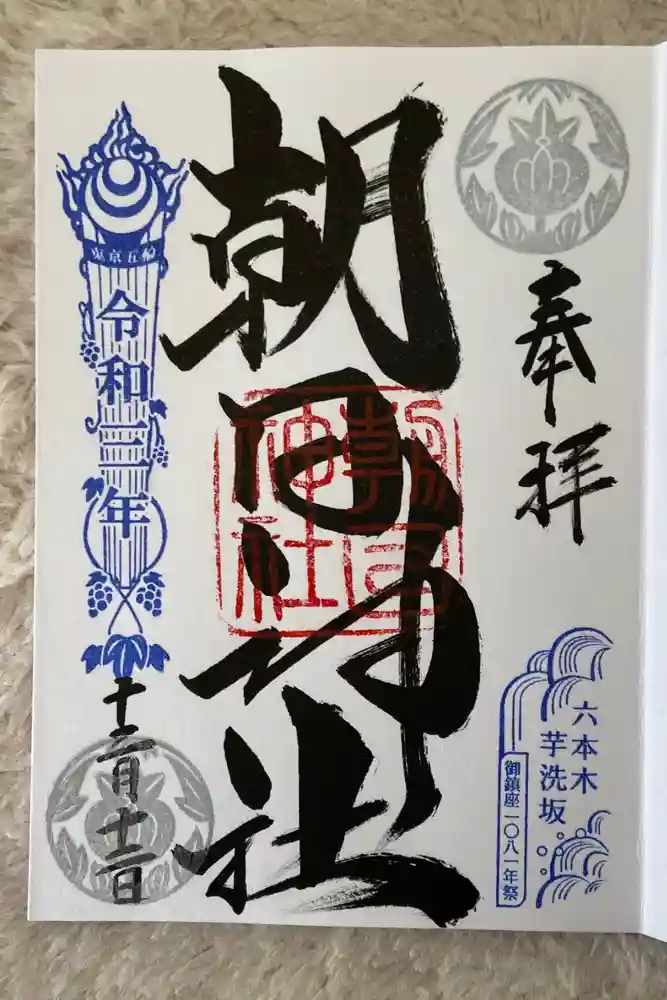 奉拝
六本木
芋洗坂
御鎮座一〇八一年祭
朝日神社
朝日
神社
東京五輪
令和三年
十二月十二日